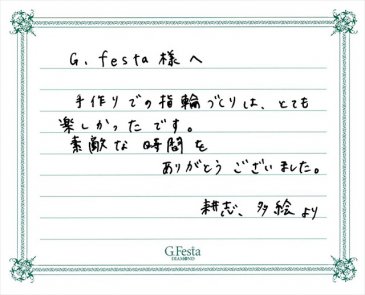 G. festa 様へ
手作りでの指輪づくりは、とても
楽しかったです。
素敵な時間を
ありがとうございました。
耕志、多絵より
G.Festa
DIAMOND